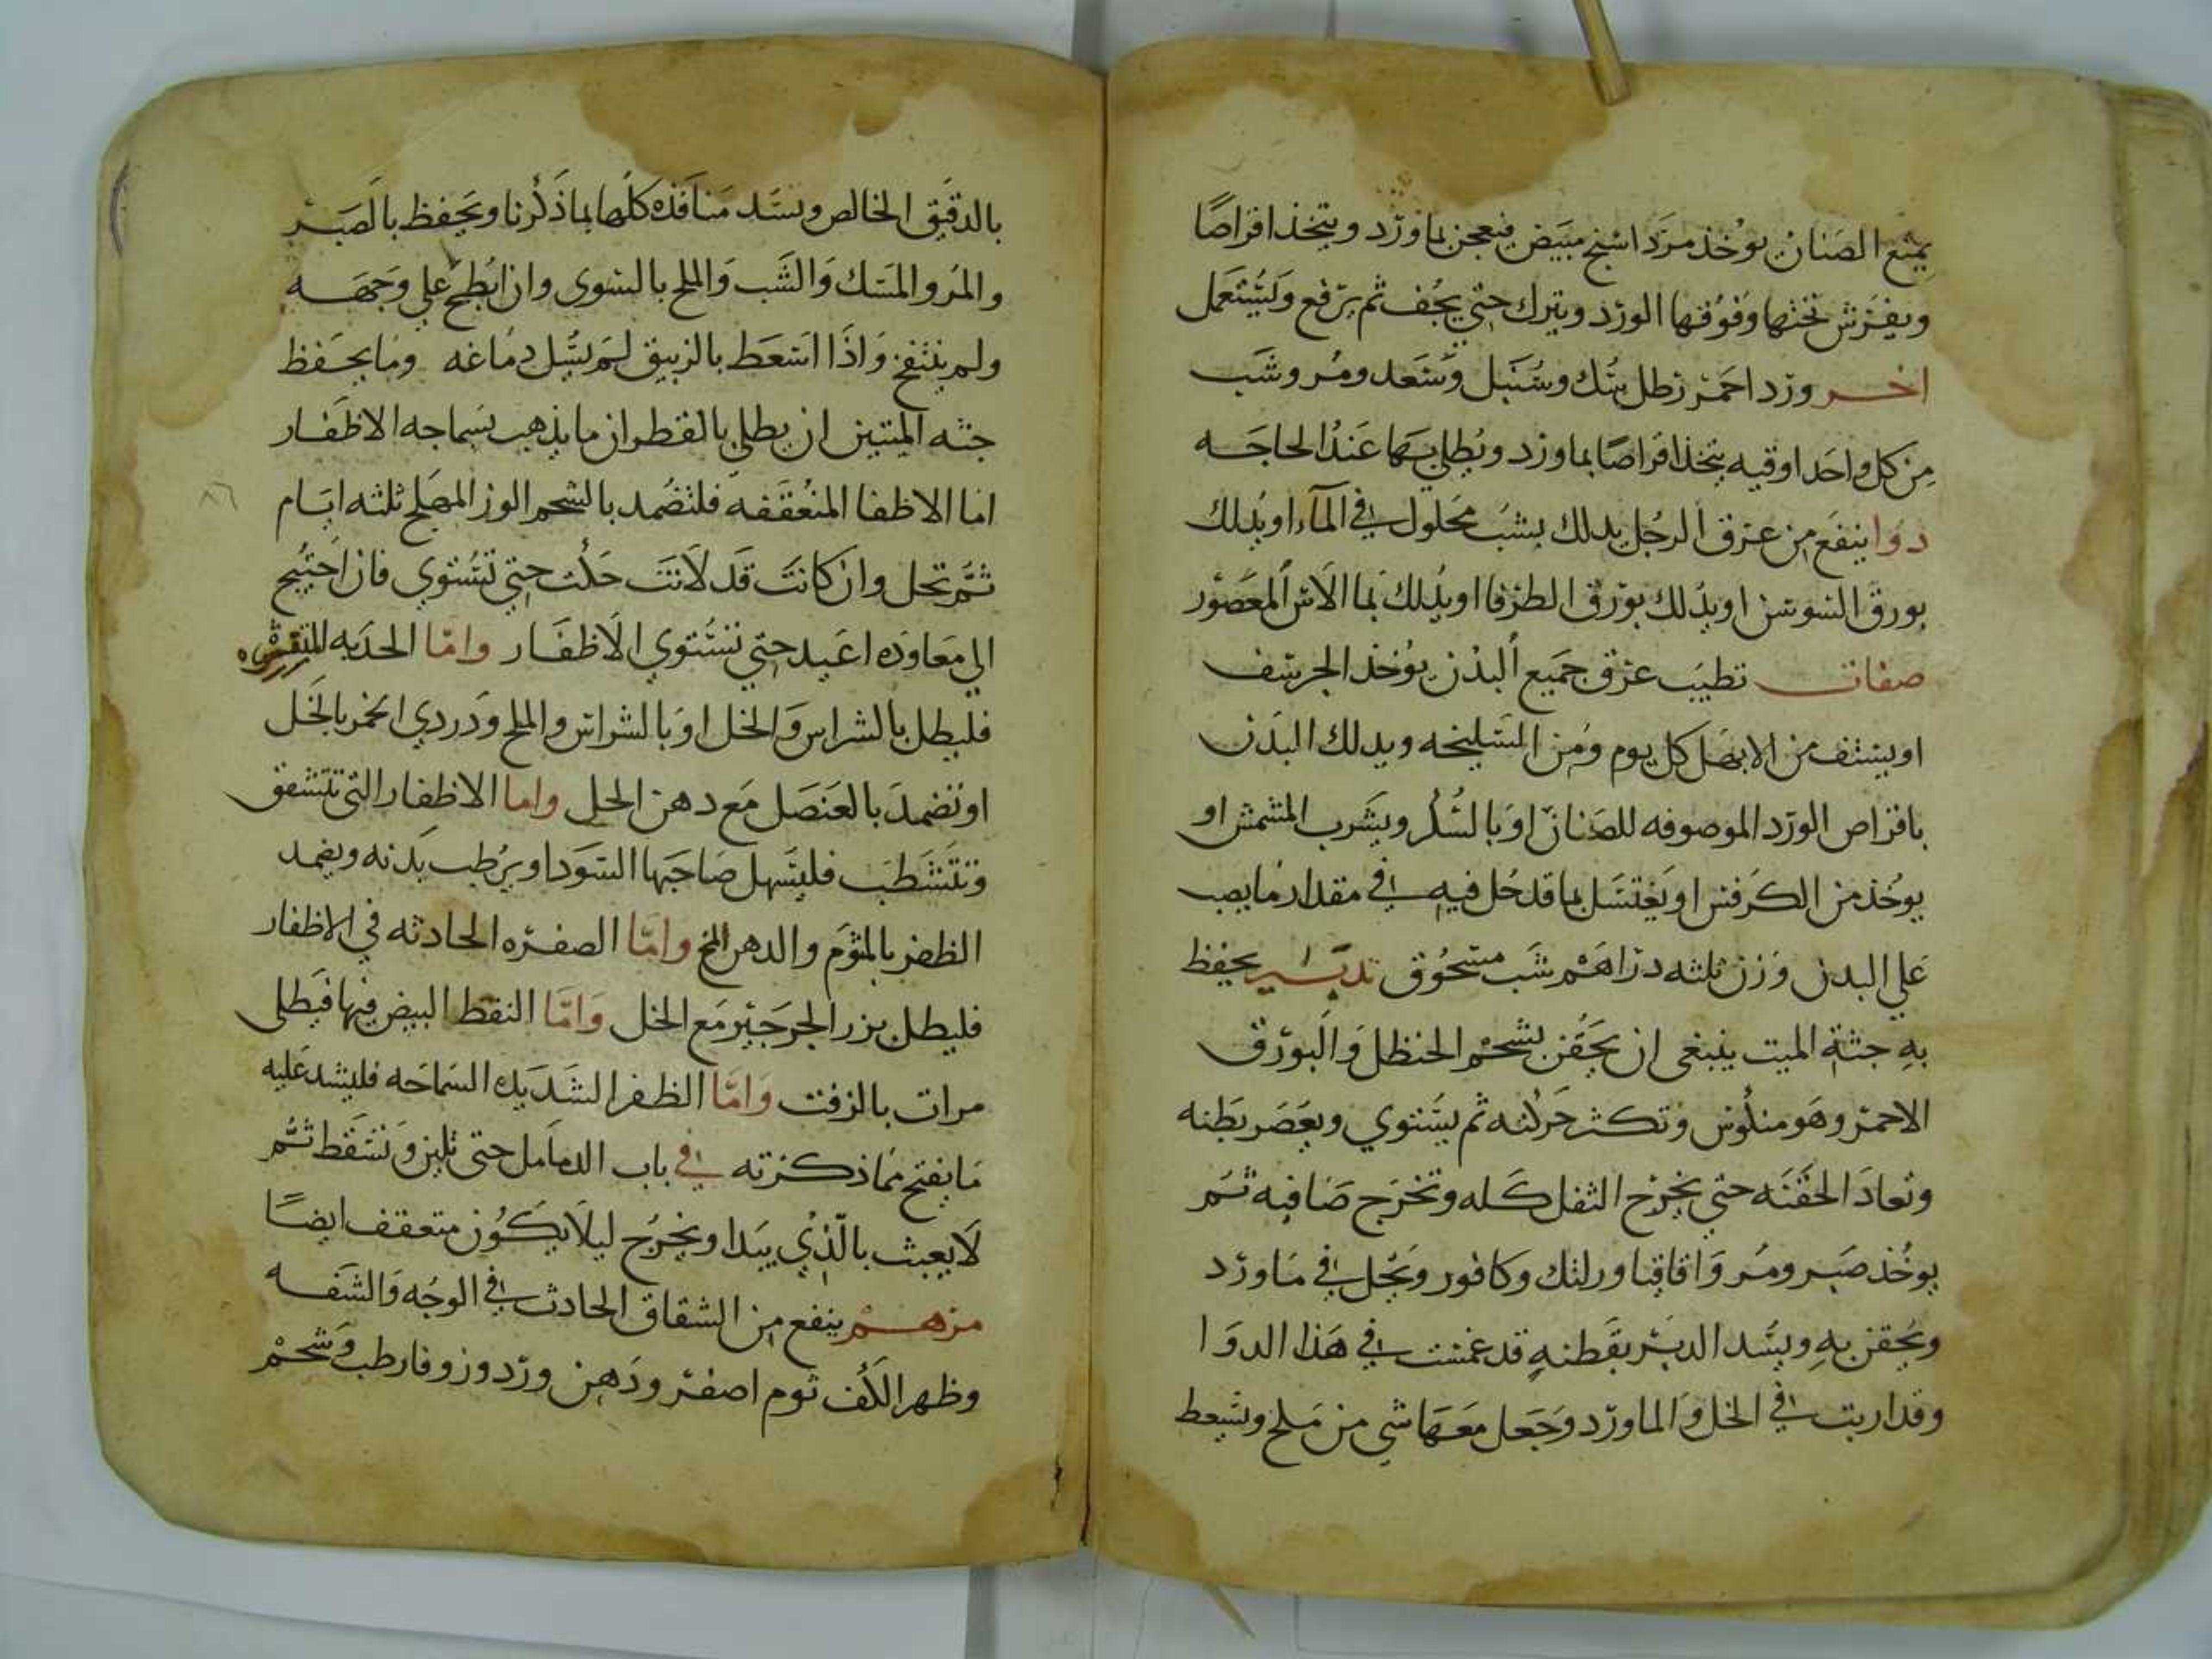 يمنع الصنان يوخذ مرداسنج مبيض فيعجن بماورد ويتخذ اقراصًا
ويفرش تحتها وفوقها الورد ويترك حتي يجف ثم يرفع وليستعمل
اخر ورد احمر رطل سك وسنبل وسعد ومر وشب
من كل واحد اوقيه يتخذ اقراصًا بماورد ويطلي بها عند الحاجه
دوا ينفع من عرق الرجل يدلك بشب محلول في المآء او يدلك
بورق السوسن او يدلك بورق الطرفا او يدلك بما الاس المعصور
صفات تطيب عرق جميع البدن يوخذ الحرشف
او يستف من الابهل كل يوم ومن السليخه ويدلك البدن
باقراص الورد الموصوفه للصنان او بالسك ويشرب المشمش او
يوخذ من الكرفس او يغتسل بما قد حل فيه في مقدار ما يصب
علي البدن وزن ثلثه دراهم شب مسحوق تدبير يحفظ
به جثة الميت ينبغي ان يحقن بشحم الحنظل والبورق
الاحمر وهو منكوس وتكثر حركته ثم يستوي ويعصر بطنه
وتعاد الحقنه حتي يخرج الثفل كله وتخرج صافيه ثم
يوخذ صبر ومر واقاقيا ورامك وكافور ويحل في ماورد
ويحقن به ويسد الدبر بقطنه قد غمست في هذا الدوا
وقد اريت في الخل والماورد وجعل معها شي من ملح ويسعط
بالدقيق الخالص وتسد منافذه كلها بما ذكرنا ويحفظ بالصبر
والمر والمسك والشب والملح بالسوي وان ابطح علي وجهه
ولم ينتفخ واذا استعط بالزيبق لم يسل دماغه وما يحفظ
جثه الميتين ان يطلي بالقطران ما يذهب بسماجه الاظفار
اما الاظفا المنعقفه فلتضمد بالشحم الوز المصلح ثلثه ايام
ثم تحل وان كانت قد لانت حكت حتي تستوي فان احتيج
الي معاوده اعيد حتي تستوي الاظفار واما الحديه المتقشره
فليطل بالشراس والخل او بالشراس والملح ودردي الخمر بالخل
او تضمد بالعنصل مع دهن الحل واما الاظفار التي تتشقق
وتتشطب فليسهل صاحبها السودا ويرطب بدنه ويضمد
الظفر بالثوم والدهن المخ واما الصفره الحادثه في الاظفار
فليطل بزر الجرجير مع الخل واما النقط البيض فيها فيطلي
مرات بالزفت واما الظفر الشديده السماجه فليشد عليه
ما يفتح مما ذكرته في باب الدمامل حتي تلين وتسقط ثم
لا يعبث بالذي يبدا ويخرج ليلا يكون متعقف ايضًا
مرهم ينفع من الشقاق الحادث في الوجه والشفه
وظهر الكف ثوم اصفر ودهن ورد وزوفا رطب وشحم